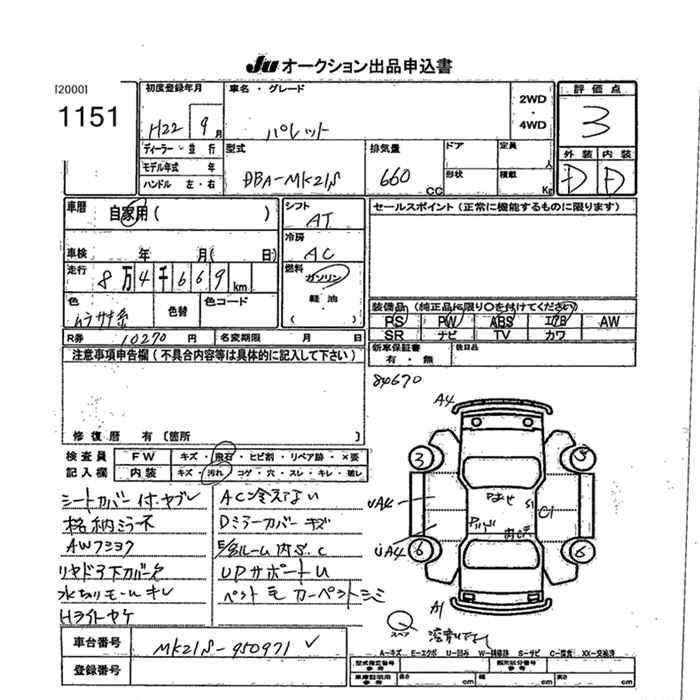 Ju オークション出品申込書
[2000]
1151
初度登録年月
H22 9月
車名・グレード
パレット
2WD
・
4WD
評価点
3
ディーラー・並行
モデル年式 年
ハンドル 左・右
型式
DBA-MK21S
排気量
660 CC
ドア
形状
定員
人
積載
Kg
外装 内装
D D
車歴
自家用( )
シフト
AT
セールスポイント(正常に機能するものに限ります)
車検 年 月( 日)
冷房
AC
走行
8万4千669km
燃料
ガソリン
軽油
( )
色
ムラサキ系
色替
色コード
装備品(純正品に限り○を付けてください)
PS PW ABS エアB AW
SR ナビ TV カワ
R券 10270 円
名変期限 月 日
新車保証書
有・無
後日品
注意事項申告欄(不具合内容等は具体的に記入して下さい)
84670
修復歴 有〔箇所 〕
検査員
記入欄
FW キズ・飛石・ヒビ割・リペア跡・×要
内装 キズ・汚れ・コゲ・穴・スレ・キレ・破レ
シートカバー付ヤブレ
格納ミラー不
AWフショク
水切りモールキレ
Hライトヤケ
ACひえない
Dミラーカバーキズ
UPサポートU
ペット毛 カーペットシミ
A4
3
UA4
S1
C1
6
UA4
6
A1
スペア
車台番号 MK21S-950971
登録番号
A-キズ E-エクボ U-凹み W-補修跡 S-サビ C-腐食 XX-交換済
型式指定番号
参考
類別区分番号
参考
車庫証明用
参考
長さ cm
幅 cm
高さ cm